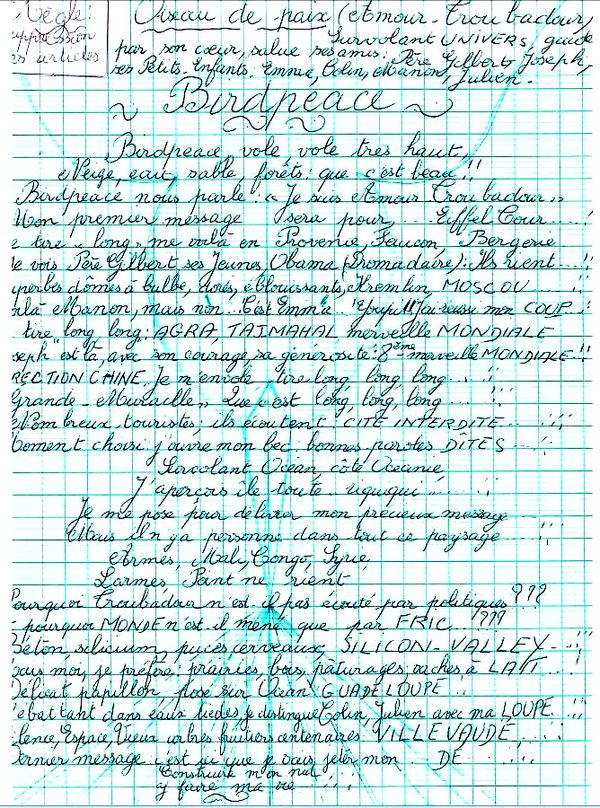 Règle:
suppression
es articles
Oiseau de paix (Amour-Troubadour,
Survolant UNIVERS, guidé
par son cœur, salue ses amis: Père Gilbert, Joseph,
ses Petits-Enfants: Emma, Colin, Manon, Julien.
~ Birdpeace ~
Birdpeace vole vole très haut,
Neige, eau, sable, forêts: que c'est beau!!
Birdpeace nous parle: "Je suis Amour Troubadour"
Mon premier message sera pour Eiffel Tour
e tire "long" me voilà en Faucon, Bergerie
Je vois Père Gilbert ses Jeunes Obama (Dromadaire): Ils rient
uperbes dômes à bulbe, dorés, éblouissants, Kremlin, MOSCOU
oilà Manon, mais non... C'est Emma Youpi!! J'ai réussi mon COUP
tire long long: AGRA, TAJMAHAL merveille MONDIALE
seph est là, avec son courage, sa générosité: 8ème merveille MONDIALE!!
RECTION CHINE, Je m'envole tire long, long, long
Grande-Muraille" Que c'est long, long, long
Nombreux touristes; ils écoutent: CITE INTERDITE
Moment choisi j'ouvre mon bec: bonnes paroles DITES
Survolant Océan, côté Océanie,
J'aperçois île toute riquiqui
Je me pose pour délivrer mon précieux message
Mais il n'y a personne dans tout ce paysage
Armes, Mali, Congo, Syrie,
Larmes, Pant ne rient
Pourquoi Troubadour n'est il pas écouté par politiques ???
pourquoi MONDE n'est il mené que par FRIC ????
Béton, silicium, puces, cerveaux, SILICON-VALLEY
ous moi, je préfère: prairies, bois, pâturages, vaches à LAIT
Délicat papillon, posé sur Océan: GUADELOUPE
ébattant dans eaux tièdes, je distingue Colin, Julien avec ma LOUPE
lence, Espace, Vieux arbres fruitiers centenaires: VILLEVAUDÉ
ernier message: c'est ici que je vais jeter mon DÉ
Construire mon nid
y faire ma vie